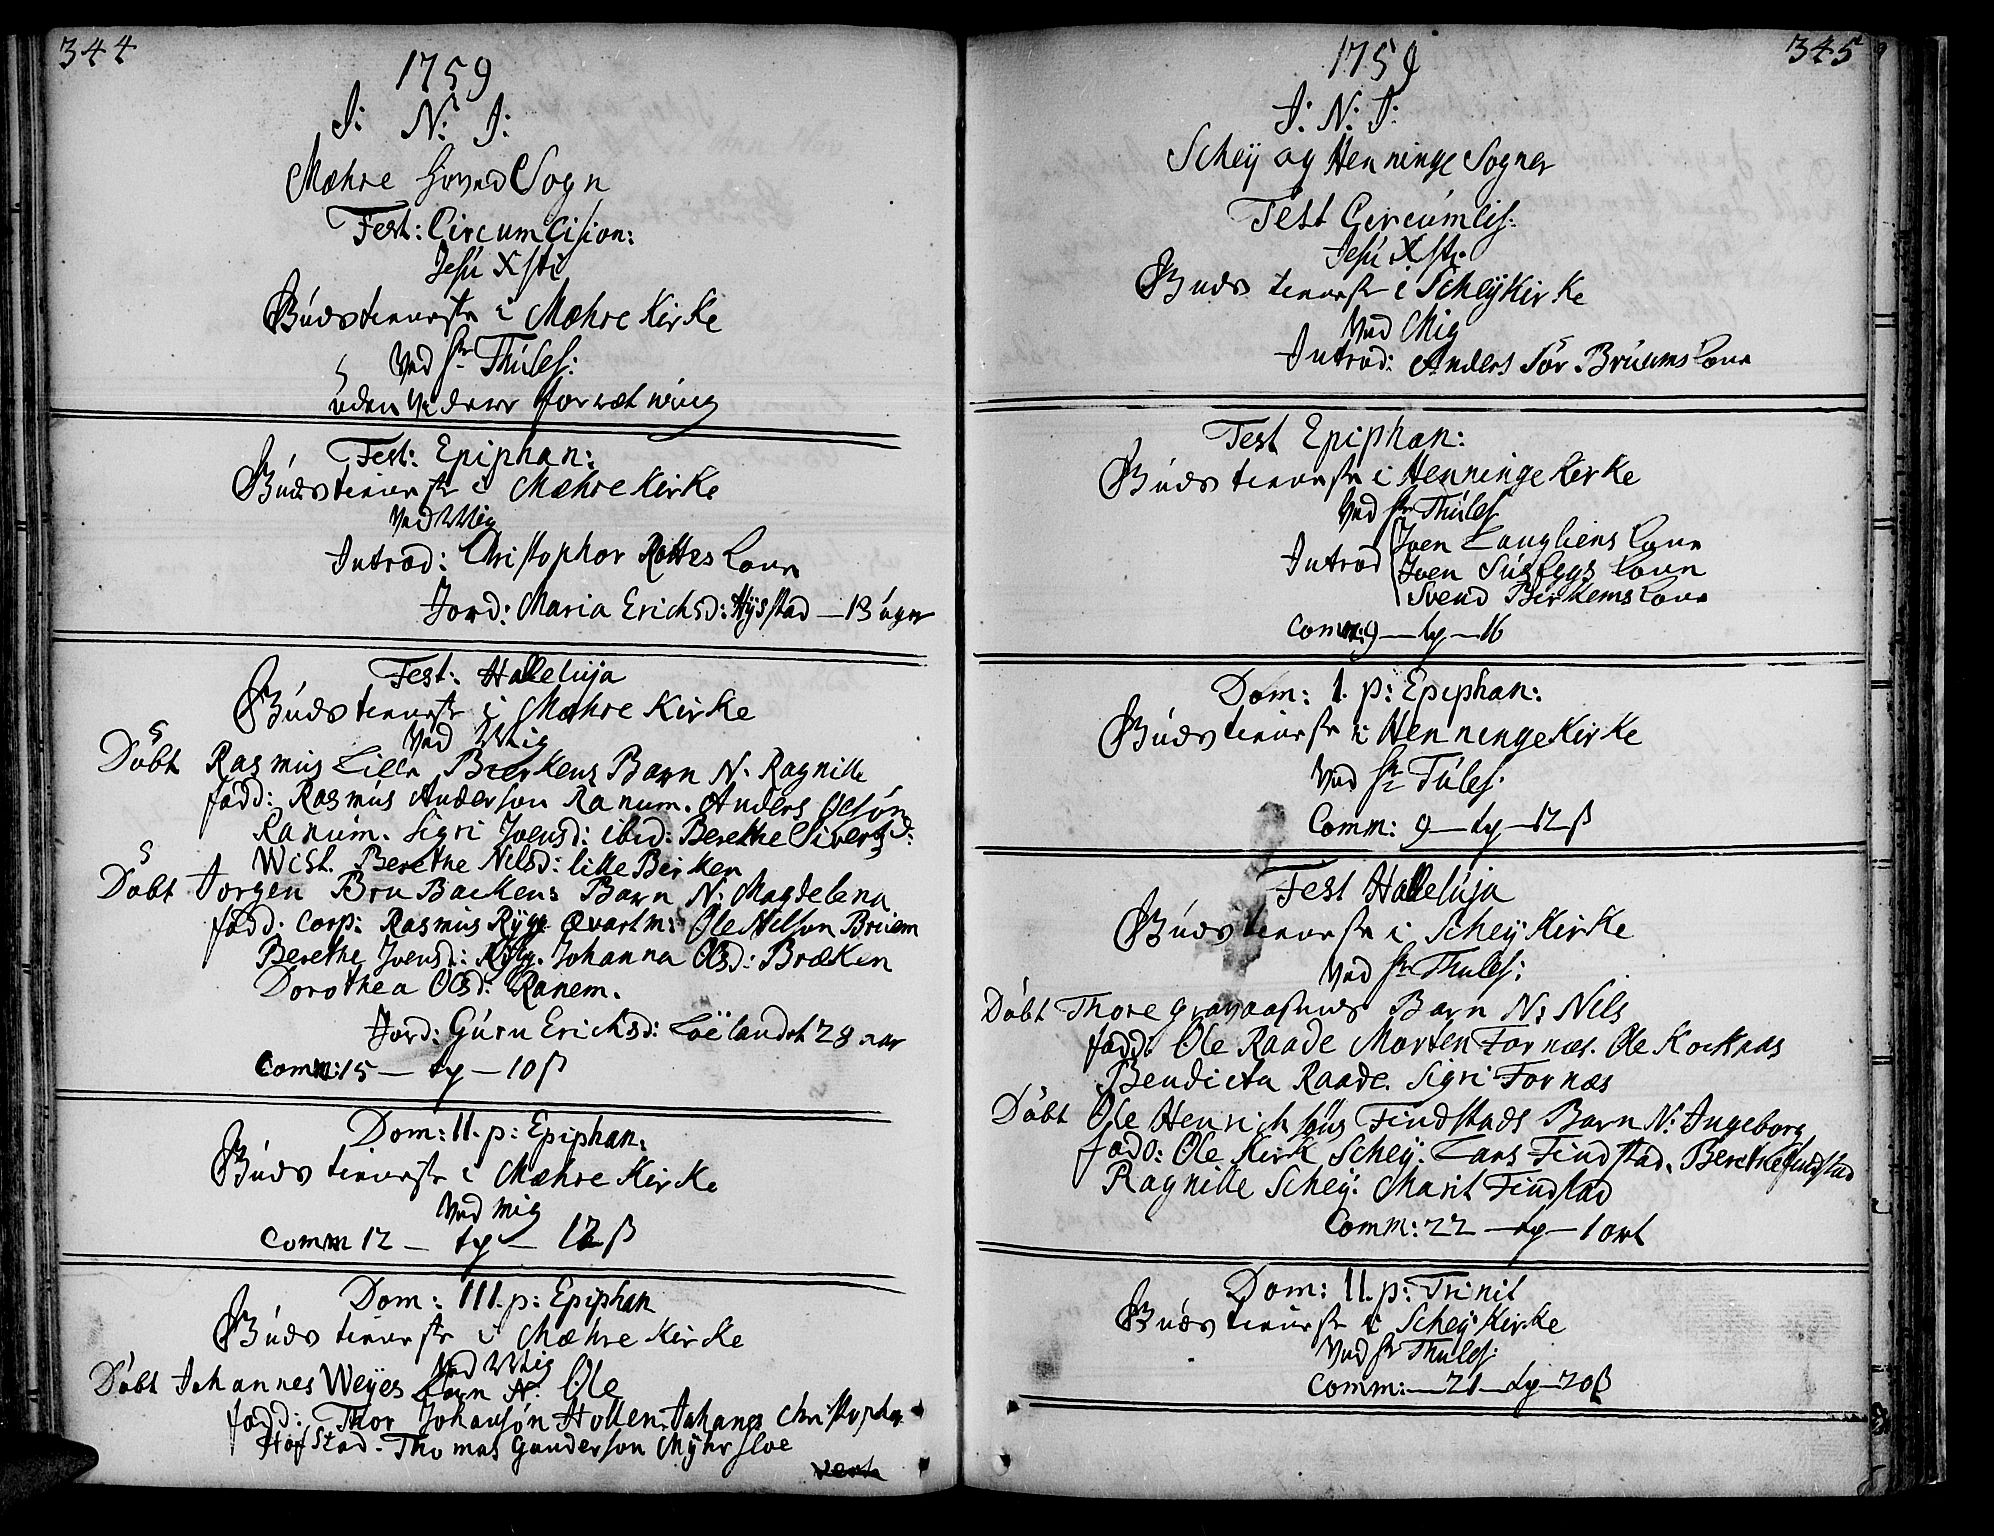 344
1759
J: N: J:
Mæhre Hoved Sogn
Fest: Circumcision:
Jesu Xsti
Gudstieneste i Mæhre Kirke
Ved Hr Thules:
uden videre forrætning
Fest: Epiphan:
Gudstieneste i Mæhre Kirke
Ved Mig
Introd: Christopher Rottes Kone
Jord: Maria Ericksd: Hÿstad — 13 uger
Fest: Halleluja
Gudstieneste i Mæhre Kirke
Ved Mig
Döbt Rasmus Lille Bierkens Barn N: Ragnille
fadd: Rasmus Anderson Ranum. Anders Olsön
Ranum. Sigri Iversd: ibid: Berethe Sivers d:
Wist. Berethe Nilsd: lille Birken
Döbt Jorgen Bru Backens Barn N: Magdelena
fadd: Corp: Rasmus Rygg Qvartm: Ole Nilson Bruem
Berethe Iversd: Johanna Olsd: Bræken
Dorothea Olsd: Ranem.
Jord: Guru Ericksd: Löelandet 28 aar
Comm: 15 — tg — 10 ß
Dom: II. p: Epiphan:
Gudstieneste i Mæhre Kirke
Ved mig
Comm 12 — tg — 12 ß
Dom: III. p: Epiphan
Gudstieneste i Mæhre Kirke
Ved Mig
Döbt Johannes Weyes Barn N: Ole
fadd: Thor Johansön Hollen. Johanes Christopher
Hofstad. Thomas Gunderson Mÿhrsloe
verte
345
1759
J: N: J:
Scheÿ og Henninge Sogner
Fest Circumcis:
Jesu Xsti.
Gudstieneste i Scheÿ Kirke
Ved Mig
Introd: Anders Sör Bruems Kone
Fest Epiphan:
Gudstieneste i Henninge Kirke
Ved Hr Thules
Introd Iven Langliens Kone
Iven Kone
Svend Birkems Kone
Comm: 9 — tg — 16
Dom: I. p: Epiphan:
Gudstieneste i Henninge Kirke
Ved Hr Tules:
Comm: 9 — tg — 12 ß
Fest Halleluja
Gudstieneste i Scheÿ Kirke
Ved Hr Thules:
Döbt Thore Barn N: Nils
fadd: Ole Raade Morten Fornæs. Ole Kocknas
Bendicta Raade. Sigri Fornæs
Döbt Ole Henrichsöns Findstads Barn N: Ingeborg
fadd: Ole Kirk Scheÿ: Lars Findstad. Berethe Findstad
Ragnille Scheÿ: Marit Findstad
Comm: 22 — tg — 1 ort
Dom: II. p: Trinit
Gudstieneste i Scheÿ Kirke
Ved Hr Thules:
Comm: — 21 — tg — 20 ß